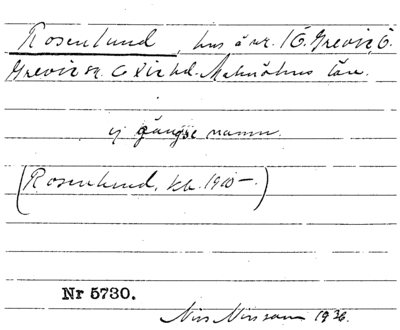 Rosenlund, hus å nr. 16 Grevie, Ö.
Grevie sn. Oxie hd. Malmöhus län.
ej gängse namn.
(Rosenlund, kb. 1900-.)
Nr 5730.
Nils Nilsson 1936.